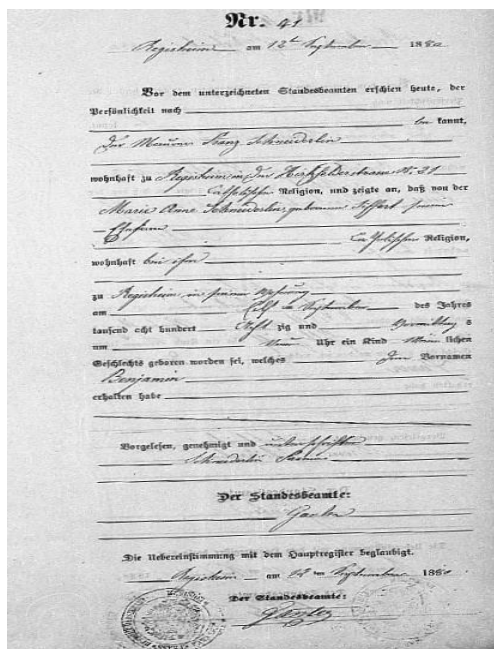 Nr. 41
Regisheim am 12ten September 1880
Vor dem unterzeichneten Standesbeamten erschien heute, der
Persönlichkeit nach
be kannt,
der Maurer Franz Schneiderlin
wohnhaft zu Regisheim in der Nr. 21
katholischer Religion, und zeigte an, daß von der
Marie Anne Schneiderlin, geborenen seiner
Ehefrau
katholischer Religion,
wohnhaft bei ihm
zu Regisheim in seiner Wohnung
am September des Jahres
tausend acht hundert acht zig und Vormittag s
um Uhr ein Kind männ lichen
Geschlechts geboren worden sei, welches den Vornamen
Benjamin
erhalten habe
Vorgelesen, genehmigt und unterschrieben
Schneiderlin
Der Standesbeamte:
Die Uebereinstimmung mit dem Hauptregister beglaubigt.
Regisheim am 12 ten September 1880
Der Standesbeamte: